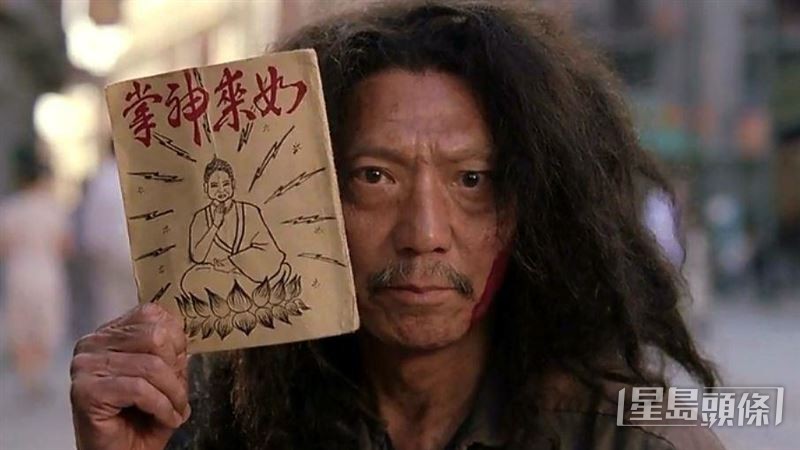 如來神掌
星島頭條